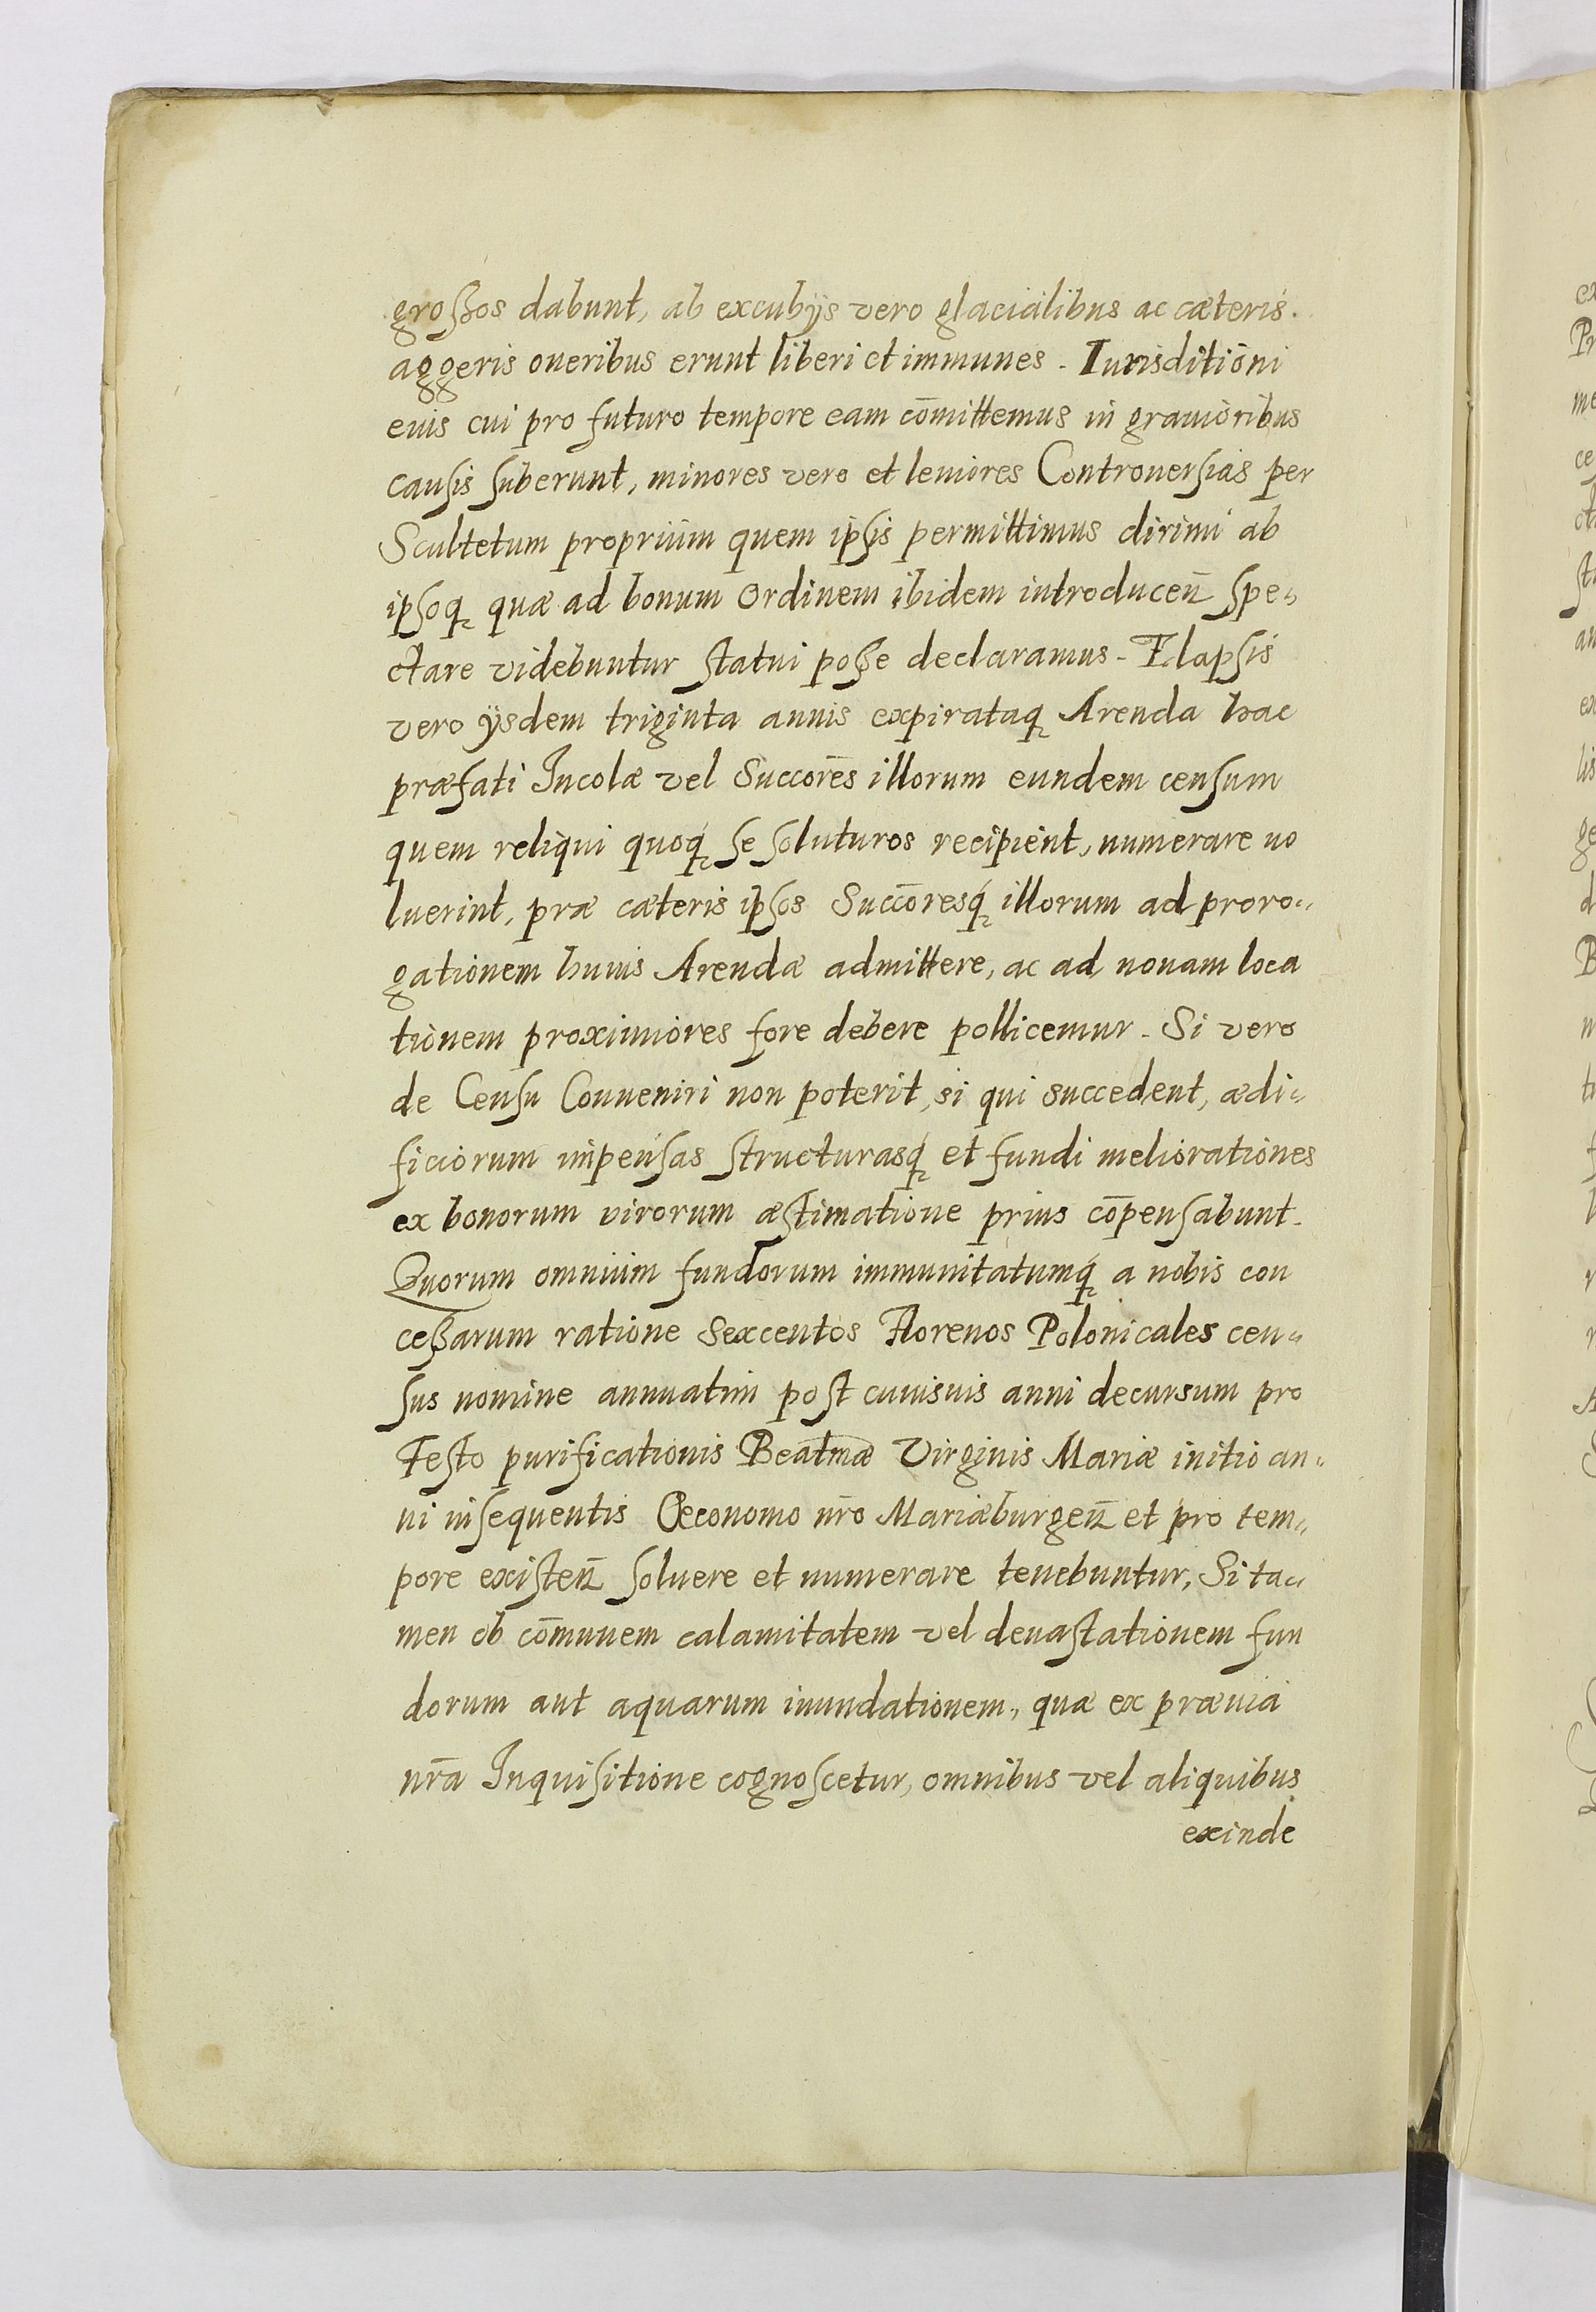 großos dabunt, ab excubijs vero glacialibus ac cæteris.
aggeris oneribus erunt liberi et immunes. Iurisditioni
euis cui pro futuro tempore eam com̄ittemus in grauioribus
causis suberunt, minores vero et leuiores Controuersias per
Scultetum proprium quem ipsis permittimus dirimi ab
ipsoq, quæ ad bonum Ordinem ibidem introducen̄ spe-
ctare videbuntur statui poße declaramus. Elapsis
vero ijsdem triginta annis expirataq, Arenda hac
præfati Incolæ vel Succorēs illorum eundem censum
quem reliqui quoq, se soluturos recipient, numerare uo
luerint, præ cæteris ipsos Succōresq, illorum ad proro-
gationem huius Arendæ admittere, ac ad nouam loca
tionem proximiores fore debere pollicemur. Si vero
de Censu Conueniri non poterit, si qui succedent, ædi-
ficiorum impensas structurasq, et fundi meliorationes
ex bonorum virorum æstimatione prius cōpensabunt.
Quorum omnium fundorum immunitatumq, a nobis con
ceßarum ratione Sexcentos Florenos Polonicales cen-
sus nomine annuatim post cuiusuis anni decursum pro
Festo purificationis Beatmæ Virginis Mariæ initio an-
ni insequentis Œconomo nr̄o Mariæburgen̄ et pro tem-
pore existen̄ soluere et numerare tenebuntur, Si ta-
men ob com̄unem calamitatem vel deuastationem fun
dorum aut aquarum inundationem, quæ ex præuia
nr̄a Inquisitione cognoscetur, omnibus vel aliquibus
exinde